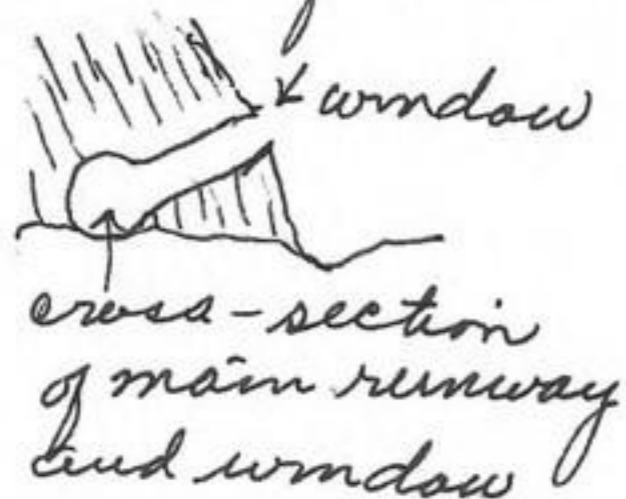 window
cross-section
of main runway
and window